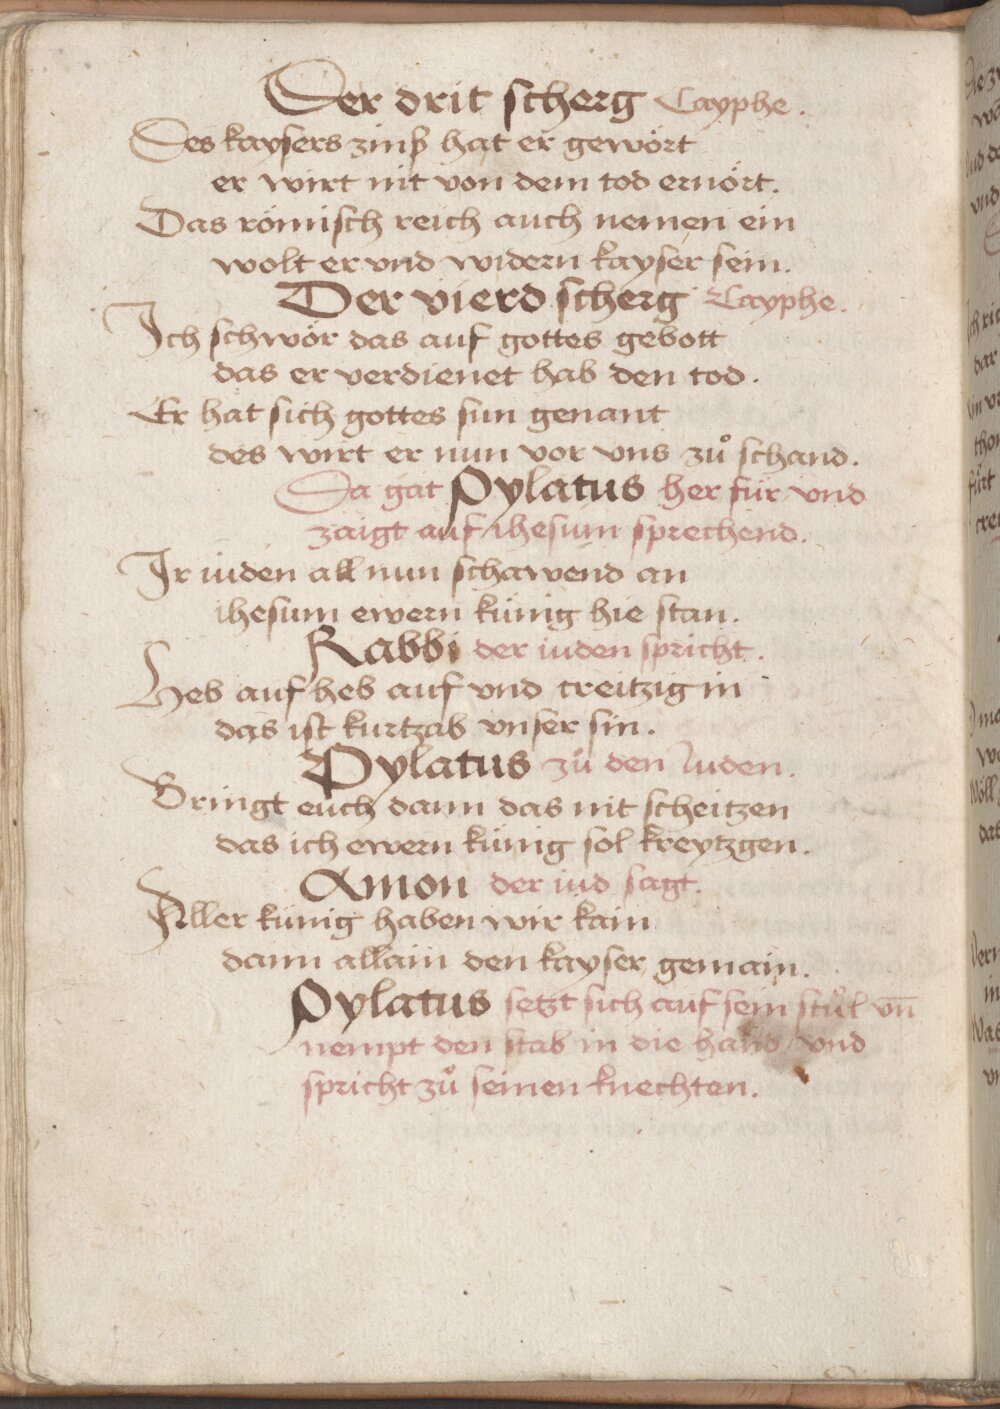 Der drit scherg Cayphe.
Des kaysers zinß hat er gewört
er wirt nit von dem tod ernört.
Das römisch reich auch nemen ein
wolt er vnd widern kayser sein.
Der vierd scherg Cayphe.
Ich schwör das auf gottes gebott
das er verdienet hab den tod.
Er hat sich gottes sun genant
des wirt er nun vor vns zuͦ schand.
Da gat Pylatus her für vnd
zaigt auf ihesum sprechend.
Ir iuden all nun schawend an
ihesum ewern künig hie stan.
Rabbi der iuden spricht.
Heb auf heb auf vnd creitzig in
das ist kurtzab vnser sin.
Pylatus zuͦ den Iuden.
Bringt euch dann das nit scheitzen
das ich ewern künig sol kreytzgen.
Amon der iud sagt.
Aller künig haben wir kain
dann allain den kayser gemain.
Pylatus setzt sich auf sein stuͦl vn̄
nempt den stab in die hand vnd
spricht zuͦ seinen knechten.